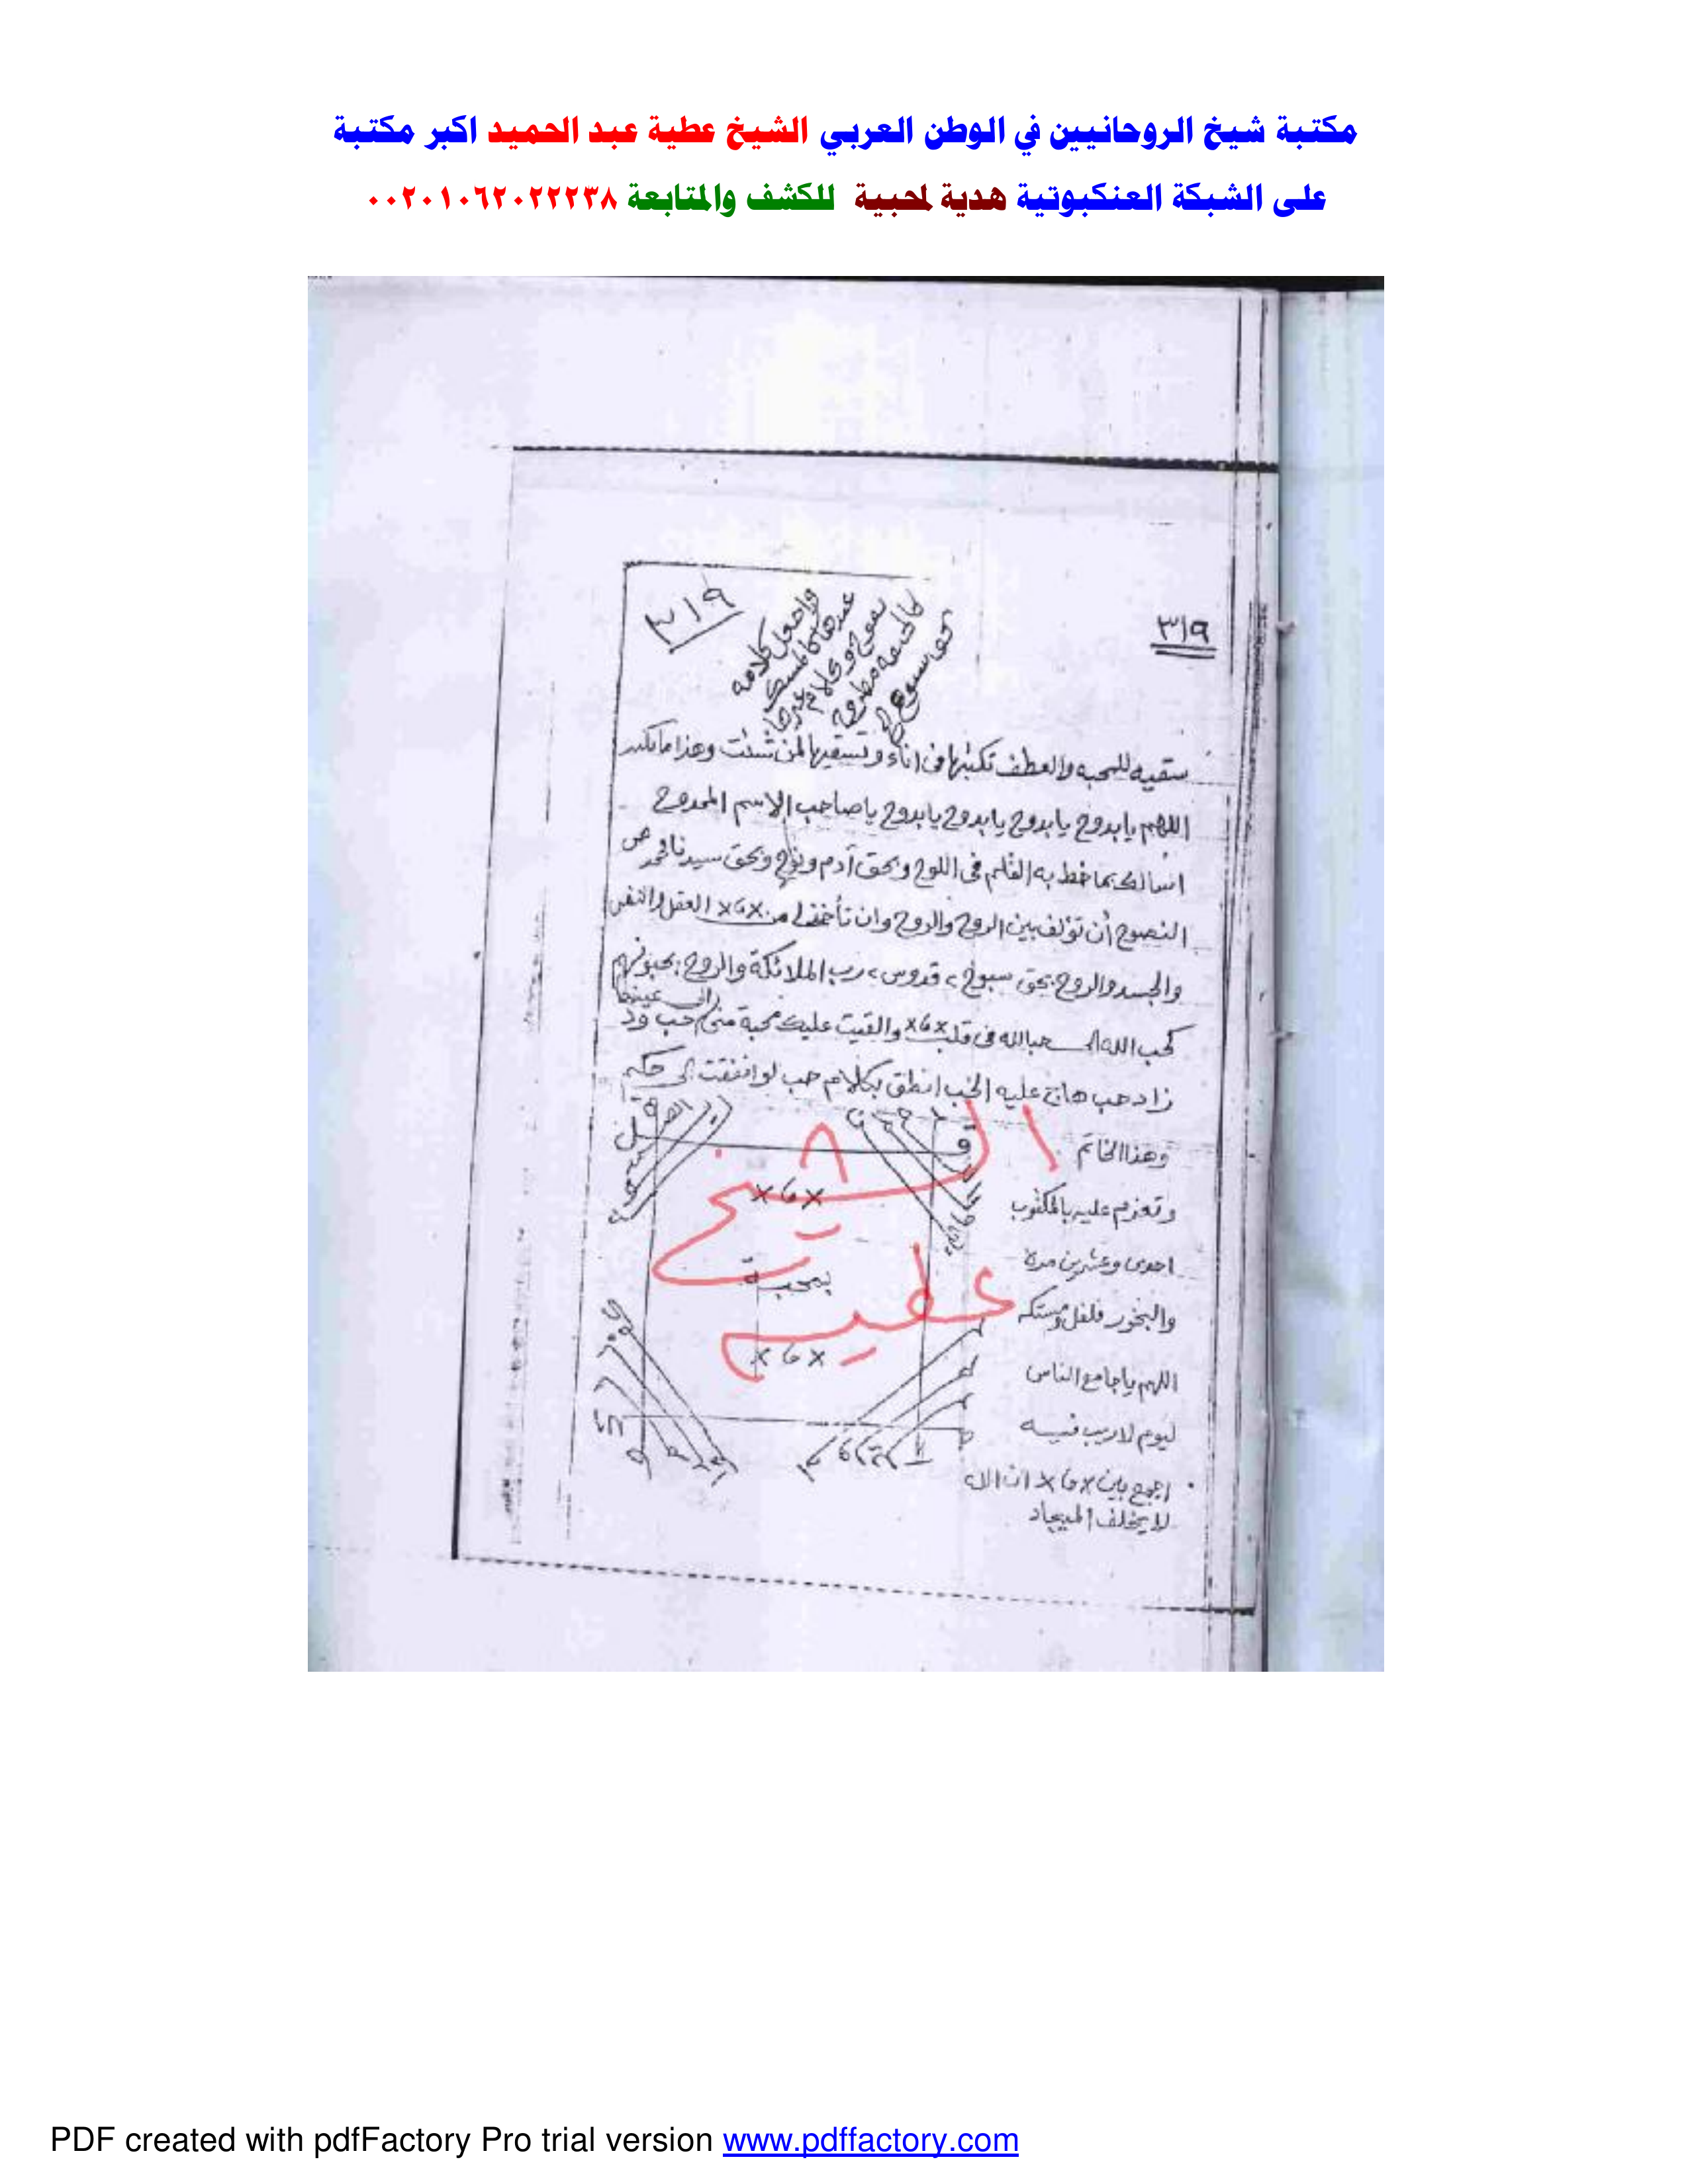 مكتبة شيخ الروحانيين في الوطن العربي الشيخ عطية عبد الحميد اكبر مكتبة
على الشبكة العنكبوتية هدية لمحبية للكشف والمتابعة ٠٠٢٠١٠٦٢٠٢٢٢٣٨
٣١٩
٣١٩
واجعل كلامه
عندها كالمسك
سقيه للمحبه والعطف تكتبها فى اناء وتسقيها لمن شئت وهذا ما تكتب
اللهم يا بدوح يا بدوح يا بدوح يا بدوح يا صاحب الاسم الممدوح
اسالك بما خط به القلم فى اللوح وبحق آدم ونوح وبحق سيدنا محمد ص
النصوح أن تؤلف بين الروح والروح وان تأخذ العقل والنفس
والجسد والروح بحق سبوح ، قدوس ، رب الملائكة والروح يحبونهم
كحب الله حب الله فى قلب × ٦ × والقيت عليك محبة منى حب ود
زاد حب هاج عليه الحب انطق بكلام حب لو انفقت الى حكيم
وهذا الخاتم
وتعزم عليه بالمكتوب
احدى وعشرين مرة
والبخور فلفل ومستكه
اللهم يا جامع الناس
ليوم لا ريب فيه
اجمع بين × ٦ × ان الله
لا يخلف الميعاد
× ٦ ×
بمحبة
× ٦ ×
الشيخ
عطيه
PDF created with pdfFactory Pro trial version www.pdffactory.com